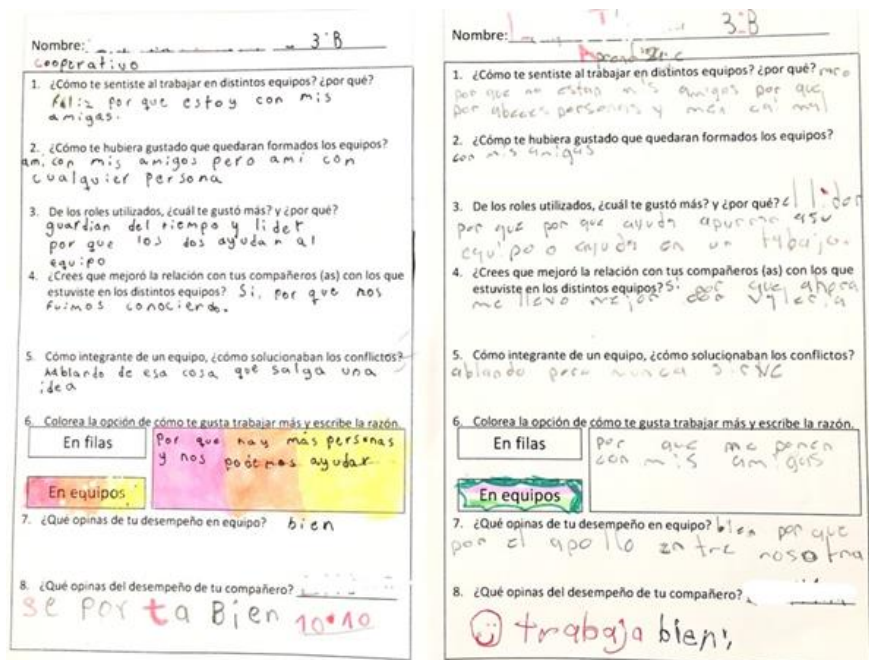 Nombre: 3°B
Cooperativo
1. ¿Cómo te sentiste al trabajar en distintos equipos? ¿por qué?
Feliz por que estoy con mis
amigas.
2. ¿Cómo te hubiera gustado que quedaran formados los equipos?
ami con mis amigos pero ami con
cualquier persona
3. De los roles utilizados, ¿cuál te gustó más? y ¿por qué?
guardian del tiempo y lider
por que los dos ayudan al
equipo
4. ¿Crees que mejoró la relación con tus compañeros (as) con los que
estuviste en los distintos equipos? Si, por que nos
fuimos conociendo.
5. Cómo integrante de un equipo, ¿cómo solucionaban los conflictos?
hablando de esa cosa que salga una
idea
6. Colorea la opción de cómo te gusta trabajar más y escribe la razón.
En filas
Por que hay más personas
y nos podemos ayudar
En equipos
7. ¿Qué opinas de tu desempeño en equipo? bien
8. ¿Qué opinas del desempeño de tu compañero?
se porta Bien 10•10
Nombre: 3°B
1. ¿Cómo te sentiste al trabajar en distintos equipos? ¿por qué? raro
por que no estan mis amigos por que
por abeces personas y men cai mal
2. ¿Cómo te hubiera gustado que quedaran formados los equipos?
con mis amigas
3. De los roles utilizados, ¿cuál te gustó más? y ¿por qué? el lider
por que por que ayuda apurar asu
equipo o en un
4. ¿Crees que mejoró la relación con tus compañeros (as) con los que
estuviste en los distintos equipos? Si por que ahora
me llevo mejor con
5. Cómo integrante de un equipo, ¿cómo solucionaban los conflictos?
ablando pero nunca
6. Colorea la opción de cómo te gusta trabajar más y escribe la razón.
En filas
por que me ponen
con mis amigas
En equipos
7. ¿Qué opinas de tu desempeño en equipo? bien por que
por el apollo entre nosotra
8. ¿Qué opinas del desempeño de tu compañero?
trabaja bien